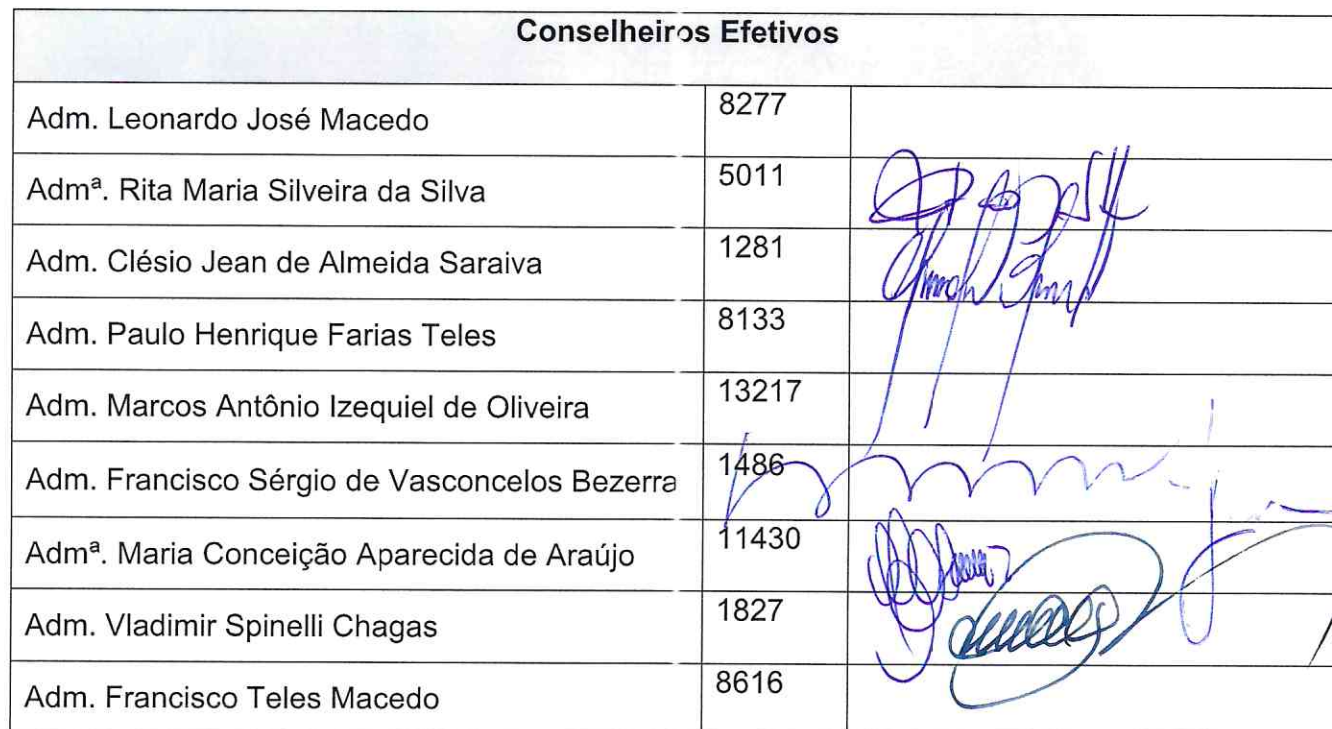 Conselheiros Efetivos
Adm. Leonardo José Macedo 8277
Admª. Rita Maria Silveira da Silva 5011
Adm. Clésio Jean de Almeida Saraiva 1281
Adm. Paulo Henrique Farias Teles 8133
Adm. Marcos Antônio Izequiel de Oliveira 13217
Adm. Francisco Sérgio de Vasconcelos Bezerra 1486
Admª. Maria Conceição Aparecida de Araújo 11430
Adm. Vladimir Spinelli Chagas 1827
Adm. Francisco Teles Macedo 8616